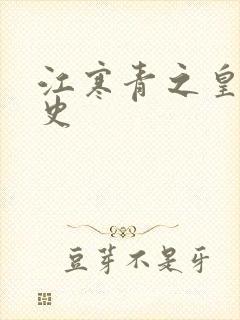 江寒青之皇
史
豆芽不是牙